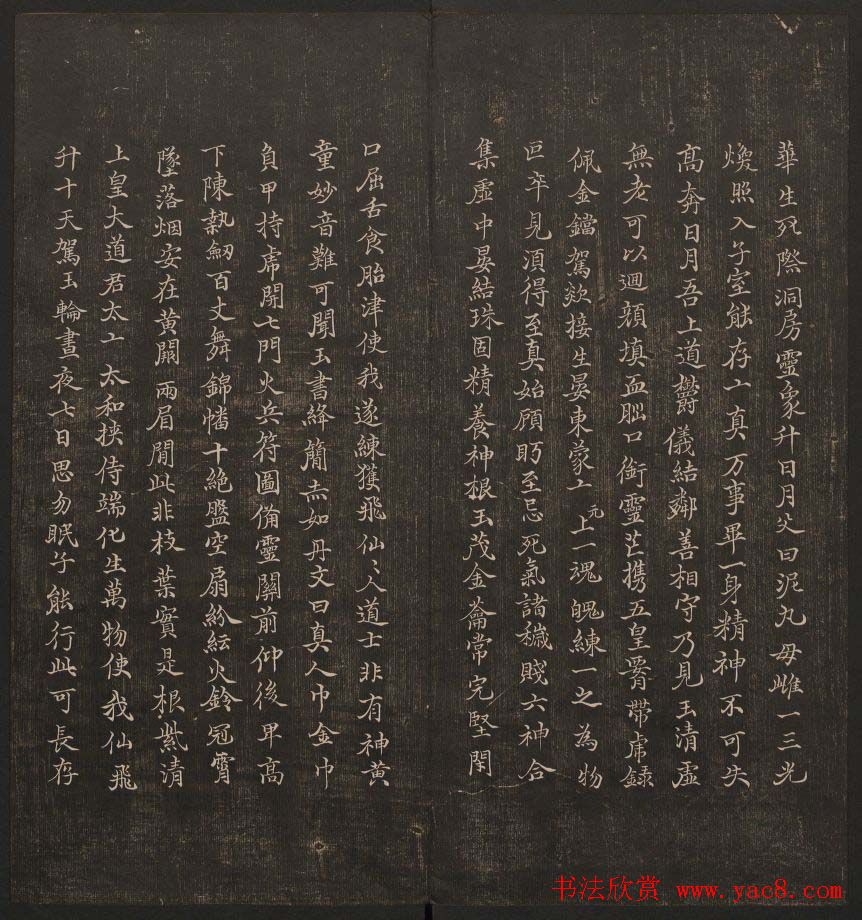 華生死際洞房靈象升日月父曰泥丸母雌一三光
煥照入子室能存亠真万事畢一身精神不可失
高奔日月吾上道欝儀結鄰善相守乃見玉清虛
無老可以迴顏填血腦口銜靈芒携五皇署帶虎錄
佩金鐺駕欻接生晏東蒙亠元上一魂魄練一之為物
叵卒見湏得至真始顧眄至忌死氣諸穢賤六神合
集虛中晏結珠固精養神根玉茂金籥常完堅閇
口屈舌食胎津使我遂練獲飛仙〻人道士非有神黄
童妙音難可聞玉書絳簡赤如丹文曰真人巾金巾
負甲持虎開七門火兵符圖備靈關前仰後卑高
下陳執劒百丈舞錦幡十絶盤空扇紛紜火鈴冠霄
墜落烟安在黄闕兩眉間此非枝葉實是根紫清
上皇大道君太亠太和挾侍端化生萬物使我仙飛
升十天駕玉輪晝夜七日思勿眠子能行此可長存
书法欣赏 www.yac8.com